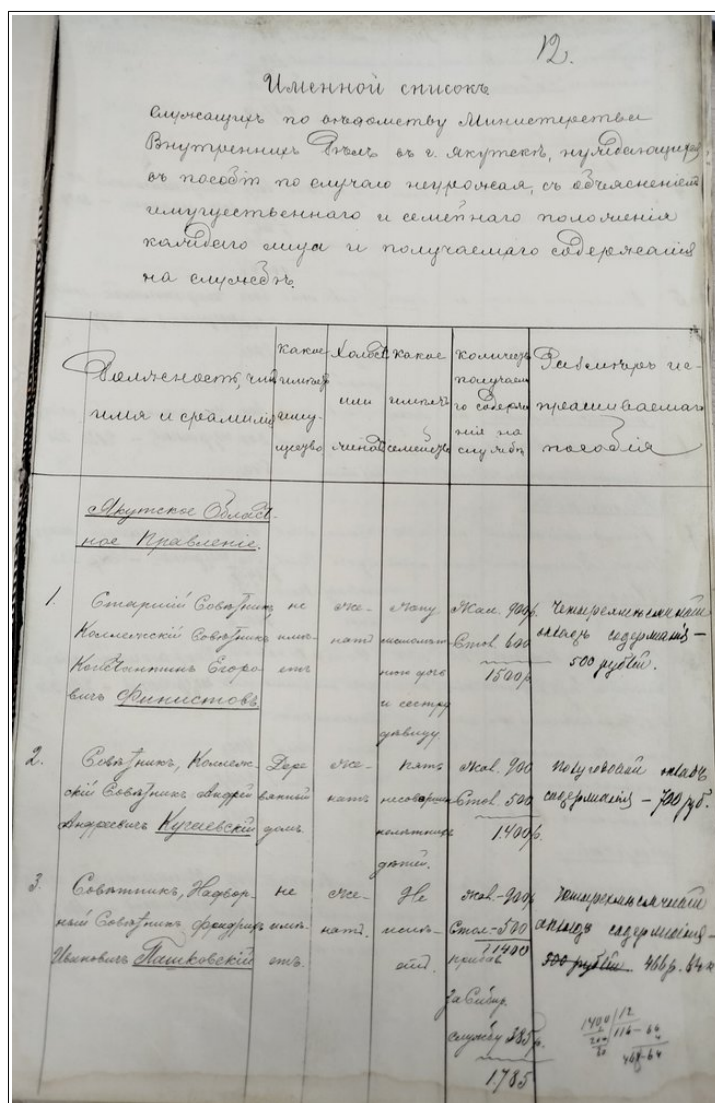 12.
Именной списокъ
служащихъ по вѣдомству Министерства
Внутреннихъ Дѣлъ въ г. Якутскѣ, нуждающихся
въ пособіи по случаю неурожая, съ объясненіемъ
имущественнаго и семейнаго положенія
каждаго лица и получаемаго содержанія
на службѣ.
Должность, чинъ
имя и фамилія
Какое
имѣетъ
иму-
щество
Холостъ
или
женатъ
Какое
имѣетъ
семейство
Количество
получаем
го содержа
нія на
службѣ
Размѣръ ис-
прашиваемаго
пособія
Якутское Област-
ное Правленіе.
1.
Старшій Совѣтникъ,
Коллежскій Совѣтникъ
Константинъ Егоро-
вичъ Финистовъ
не
имѣ-
етъ
же-
натъ
Жену
и сестру
дѣвицу
Жал. 900 р.
Стол. 600
1500 р.
Четырехмѣсячный
окладъ содержанія –
500 рублей.
2.
Совѣтникъ, Коллеж-
скій Совѣтникъ Андрей
Андреевичъ Кугаевскій
Дере
вянный
домъ.
же-
натъ
пять
несовершен
нолѣтнихъ
дѣтей.
жал. 900
Стол. 500
1.400 р.
полугодовой окладъ
содержанія – 700 руб.
3.
Совѣтникъ, Надвор-
ный Совѣтникъ Фридрихъ
Ивановичъ Пашковскій
не
имѣ-
етъ.
же-
натъ.
Не
имѣ-
етъ.
жал. – 900
Стол – 500
1400
прибав
за Сибир.
службу 385 р.
1.785
Четырехмѣсячный
окладъ содержанія –
500 рублей. 466 р. 64 к
1400 | 12
116 – 66
4